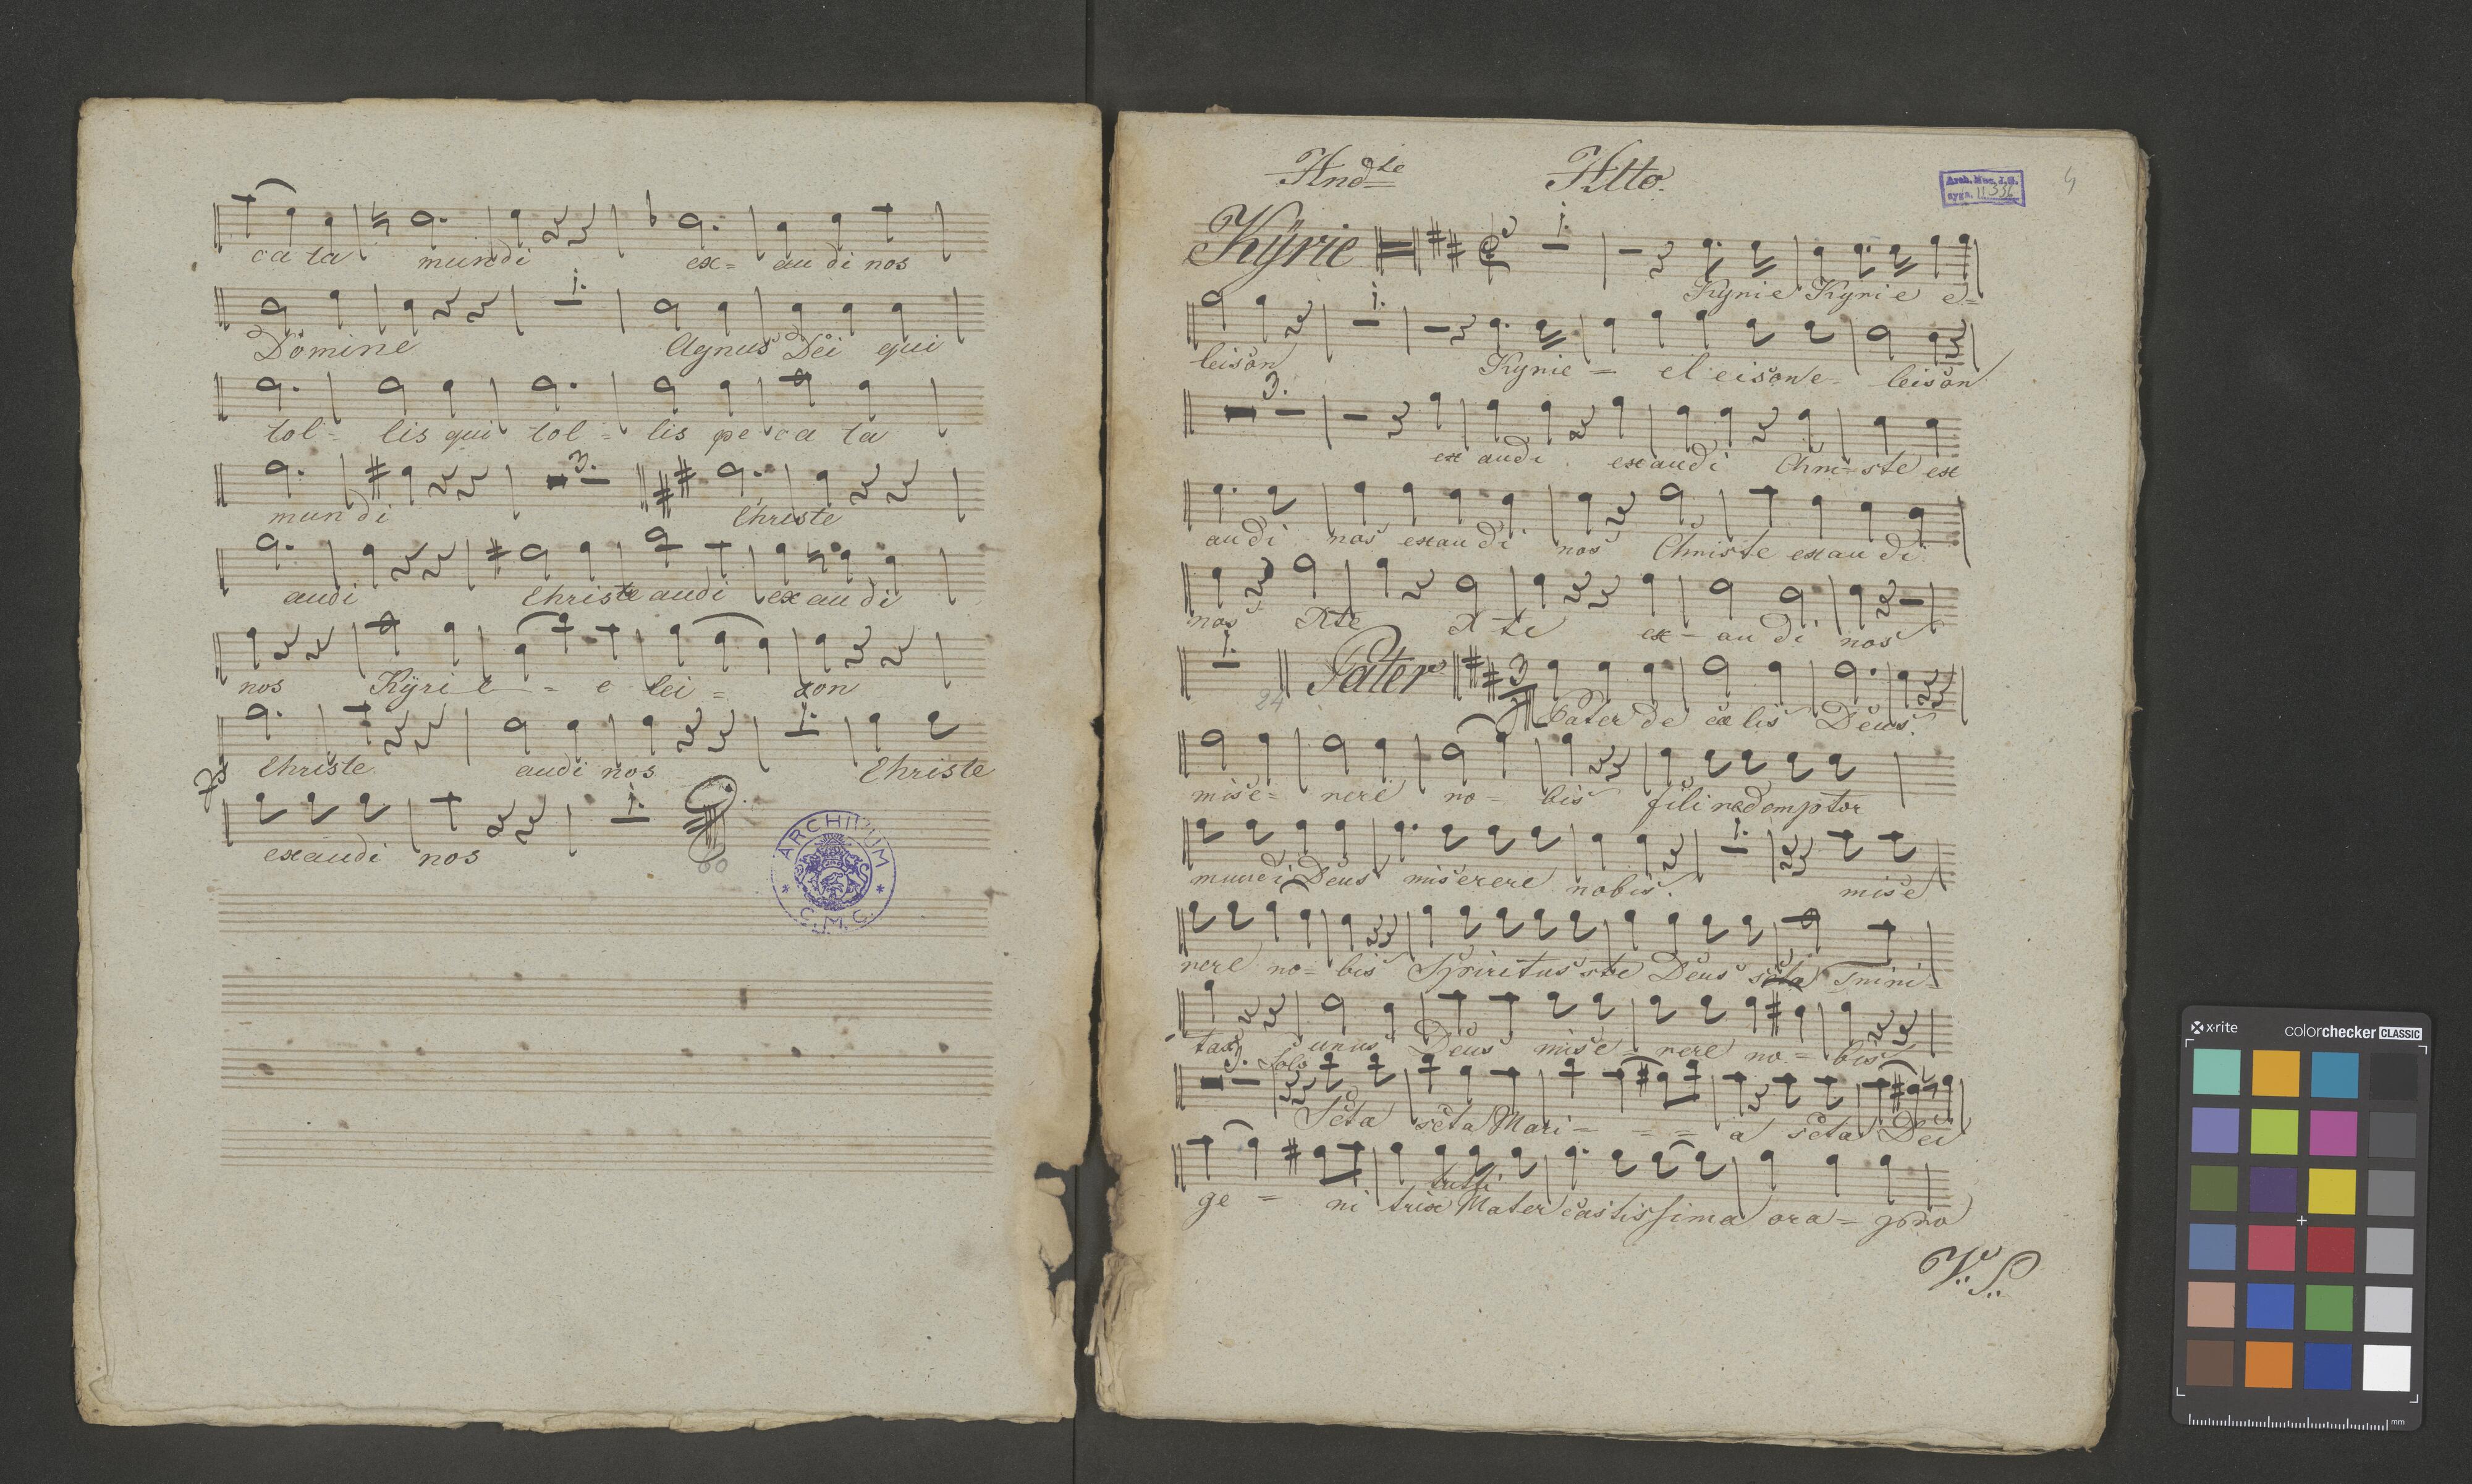 ca ta mundi ex= au di nos
Domine Agnus Dei qui
tol= lis qui tol= lis pe ca ta
3.
mun di Christe
audi Christe audi ex au di
nos Kÿri e = e lei = son
1.
Christe audi nos Christe
1.
exaudi nos
60
ARCHIVUM
C. M. C.
Andte Alto.
Arch. Mus.
sygn. II.336
Kÿrie 1.
Kyrie Kyrie e=
1.
leison Kyrie = eleison e= leison
3.
ex audi exaudi Chri-ste ex
audi nos exaudi nos Christe exau di
nos Xte X te ex-au di nos
1. Pater 3
24
Pater de cælis Deus.
mise= rere no= bis fili redemptor
1.
mundi Deus miserere nobis. mise
rere no= bis Spiritus ste Deus scta Trini=
tas unus Deus mise= rere no= bis
3. Solo
Scta scta Mari= = = a scta Dei
tutti
ge = ni trix Mater castissima ora= pro
V.S.